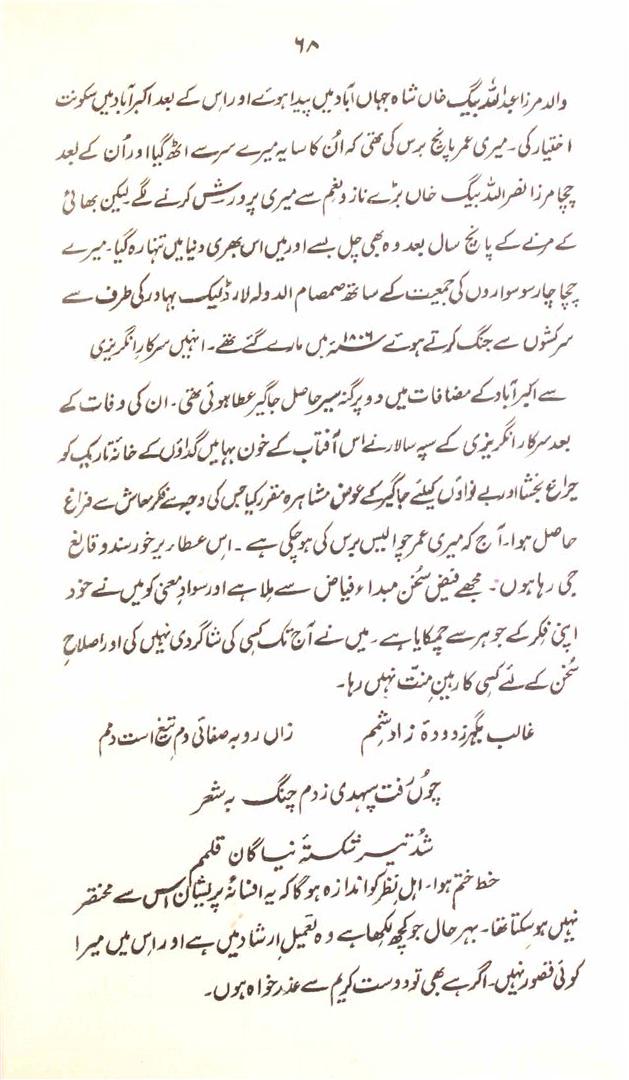 ۶۸
والد مرزا عبداللہ بیگ خاں شاہ جہاں آباد میں پیدا ہوئے اور اس کے بعد اکبر آباد میں سکونت
اختیار کی۔ میری عمر پانچ برس کی تھی کہ اُن کا سایہ میرے سر سے اٹھ گیا اور اُن کے بعد
چچا مرزا نصر اللہ بیگ خاں بڑے ناز و نغم سے میری پرورش کرنے لگے لیکن بھائی
کے مرنے کے پانچ سال بعد وہ بھی چل بسے اور میں اس بھری دنیا میں تنہا رہ گیا۔ میرے
چچا چار سو سواروں کی جمعیت کے ساتھ صمصام الدولہ لارڈ لیک بہادر کی طرف سے
سرکشوں سے جنگ کرتے ہوئے ۱۸۰۶ء میں مارے گئے تھے۔ انہیں سرکارِ انگریزی
سے اکبر آباد کے مضافات میں دو پرگنہ سیر حاصل جاگیر عطا ہوئی تھی۔ ان کی وفات کے
بعد سرکار انگریزی کے سپہ سالار نے اس آفتاب کے خون بہا میں گداؤں کے خانۂ تاریک کو
چراغ بخشا اور بے نواؤں کیلئے جاگیر کے عوض مشاہرہ مقرر کیا جس کی وجہ سے فکر معاش سے فراغ
حاصل ہوا۔ آج کہ میری عمر چوالیس برس کی ہو چکی ہے۔ اس عطا پر خورسند و قانع
جی رہا ہوں۔ مجھے فیض سُخن مبداءِ فیاض سے ملا ہے اور سوادِ معنی کو میں نے خود
اپنی فکر کے جوہر سے چمکایا ہے۔ میں نے آج تک کسی کی شاگردی نہیں کی اور اصلاحِ
سُخن کے لئے کسی کا رہینِ منّت نہیں رہا۔
غالب بگہر ز دودۂ زاد شمم زاں رو بہ صفائی دمِ تیغ است دمم
چوں رفت سپہبدی زدم چنگ بہ شعر
شُد تیرِ شکستۂ نیاگاں قلمم
خط ختم ہوا۔ اہلِ نظر کو اندازہ ہوگا کہ یہ افسانۂ پریشاں اس سے مختصر
نہیں ہو سکتا تھا۔ بہر حال جو کچھ لکھا ہے وہ تعمیلِ ارشاد میں ہے اور اس میں میرا
کوئی قصور نہیں۔ اگر ہے بھی تو دوست کریم سے عذر خواہ ہوں۔